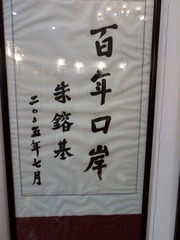 百年口岸
朱镕基
二〇〇五年七月